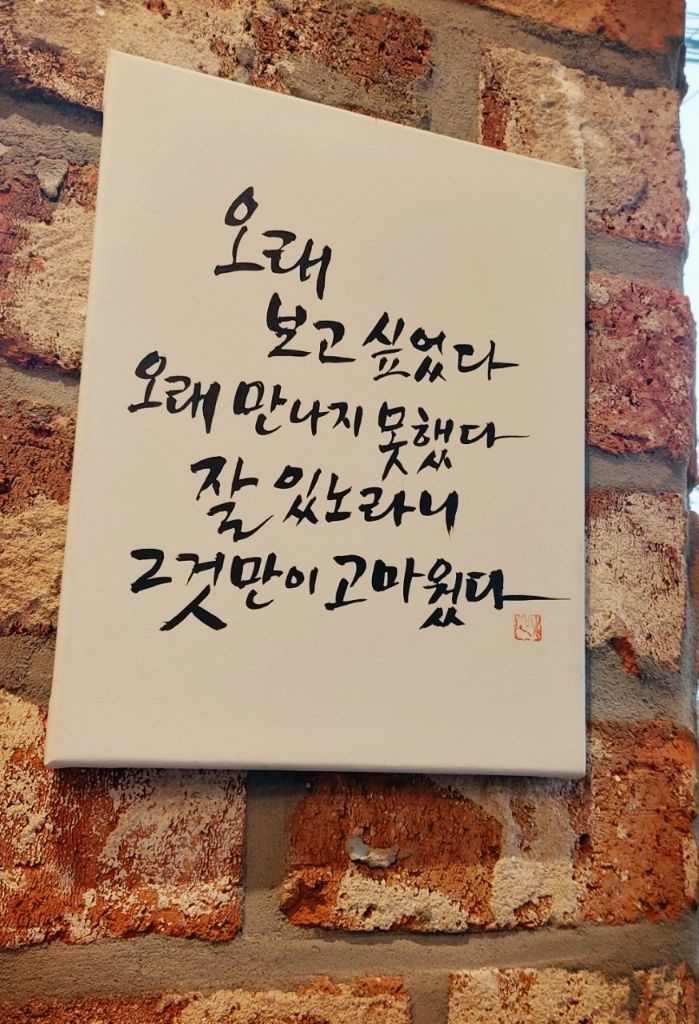 오래
보고 싶었다
오래 만나지 못했다
잘 있노라니
그것만이 고마웠다